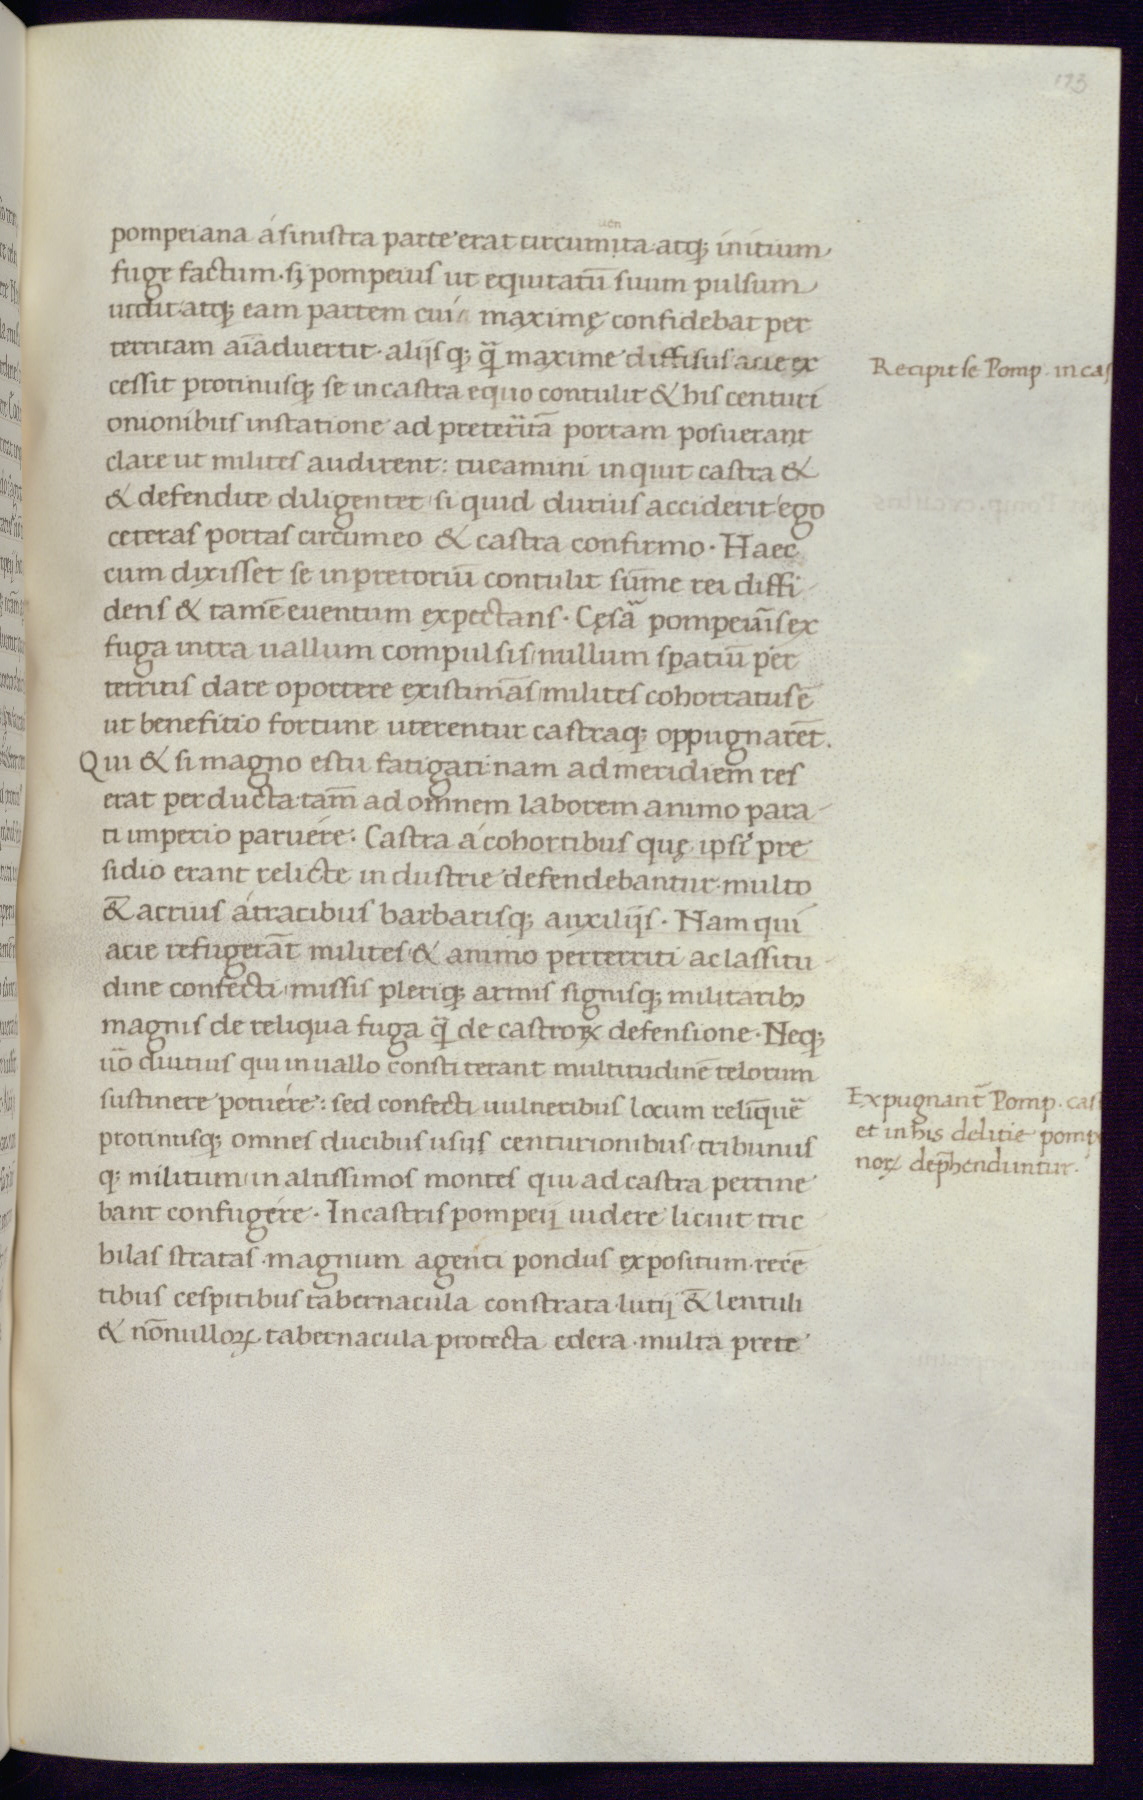 123
pompeiana á sinistra parte erat circumita atq; initium
fugę factum. sz pompeius ut equitatū suum pulsum
uidit atq; eam partem cui maximę confidebat per
territam aīaduertit. alijsq; q̄ maxime diffisus acie ex
cessit protinusq; se in castra equo contulit & his centuri
onionibus in statione ad preteritā portam posuerant
clare ut milites audirent: tueamini inquit castra &
& defendite diligenter si quid durius acciderit ego
ceteras portas circumeo & castra confirmo. Haec
cum dixisset se in pretoriū contulit sūme rei diffi
dens & tamē euentum expectans. Cęsar pompeianis ex
fuga intra uallum compulsis nullum spatiū per
territis dare oportere existimās milites cohortatus ē
ut benefitio fortune uterentur castraq; oppugnarēt.
Qui & si magno estu fatigati nam ad meridiem res
erat perducta tam̄ ad omnem laborem animo para
ti imperio paruére. Castra á cohortibus quę ipsi pre
sidio erant relicte industrie defendebantur multo
&̄ acrius átracibus barbarisq; auxilijs. Nam qui
acie refugerāt milites & animo perterriti ac lassitu
dine confecti missis plerisq; armis signisq; militarib;
magnis de reliqua fuga q̄ de castroꝝ defensione. Neq;
uō diutius qui in uallo constiterant multitudinē telorum
sustinere potuére: sed confecti uulneribus locum reliquē
protinusq; omnes ducibus usijs centurionibus tribunus
q; militum in altissimos montes qui ad castra pertine
bant confugére. In castris pompeij uidere licuit tric
bilas stratas magnum agenti pondus expositum recē
tibus cespitibus tabernacula constrata lutij &̄ lentuli
& nōnulloꝝ tabernacula protecta edera. multa prete
Recipit se Pomp. in cas
Expugnant̄ Pomp. cas
et in his delitie pomp
noꝝ dep̄henduntur.